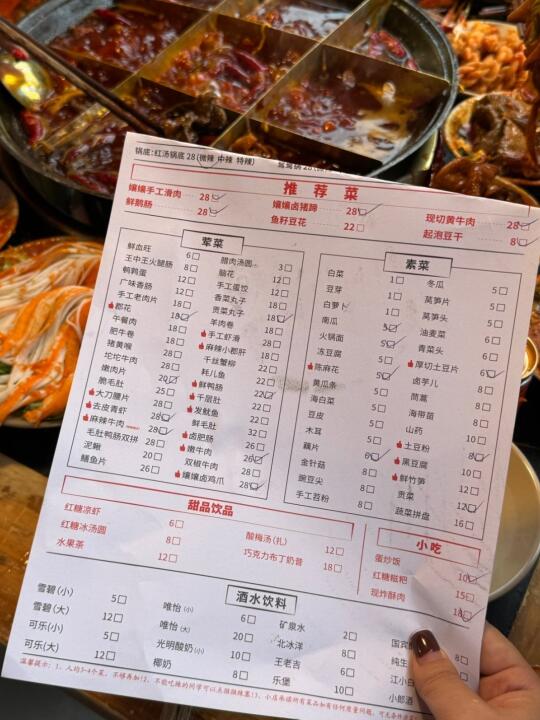 锅底:红汤锅底 28(微辣 中辣 特辣)
推荐菜
嬢嬢手工滑肉 28 嬢嬢卤猪蹄 28 现切黄牛肉 28
鲜鹅肠 28 鱼籽豆花 22 起泡豆干 8
荤菜
鲜血旺 6
王中王火腿肠 8
鹌鹑蛋 12
广味香肠 12
手工老肉片 18
郡花 18
午餐肉 18
肥牛卷 18
猪黄喉 28
坨坨牛肉 28
嫩肉片 20
脆毛肚 25
大刀腰片 28
去皮青虾 28
麻辣牛肉 28
毛肚鸭肠双拼 28
泥鳅 20
鳝鱼片 26
腊肉汤圆 3
脑花 12
手工蛋饺 12
香菜丸子 18
贡菜丸子 18
羊肉卷 18
手工虾滑 28
麻辣小郡肝 18
千丝蟹柳 22
耗儿鱼 22
鲜鸭肠 22
千层肚 22
发鱿鱼 22
鲜毛肚 32
卤肥肠 26
嫩牛肉 26
双椒牛肉 28
嬢嬢卤鸡爪 28
素菜
白菜 1
豆芽 1
白萝卜 1
南瓜 5
火锅面 5
冻豆腐 5
陈麻花 5
黄瓜条 5
海白菜 8
豆皮 8
木耳 8
藕片 8
金针菇 8
豌豆尖 8
手工苕粉 8
冬瓜 5
莴笋片 5
莴笋头 5
油麦菜 5
青菜头 6
厚切土豆片 6
卤芋儿 8
茼蒿 8
海带苗 8
山药 8
土豆粉 8
黑豆腐 10
鲜竹笋 12
贡菜 12
蔬菜拼盘 16
甜品饮品
红糖凉虾 6
红糖冰汤圆 8
水果茶 12
酸梅汤(扎) 12
巧克力布丁奶昔 18
小吃
蛋炒饭 10
红糖糍粑 15
现炸酥肉 18
酒水饮料
雪碧(小) 5
雪碧(大) 12
可乐(小) 5
可乐(大) 12
唯怡(小) 6
唯怡(大) 20
光明酸奶(小) 10
椰奶 8
矿泉水 2
北冰洋 8
王老吉 6
乐堡 10
国宾
纯生 8
江小白
小郎酒
温馨提示:1、人均3-4个菜,不够再加!2、不能吃辣的同学可以点猫猫辣呈!3、小店承诺所有菜品如有任何质量问题,可无条件